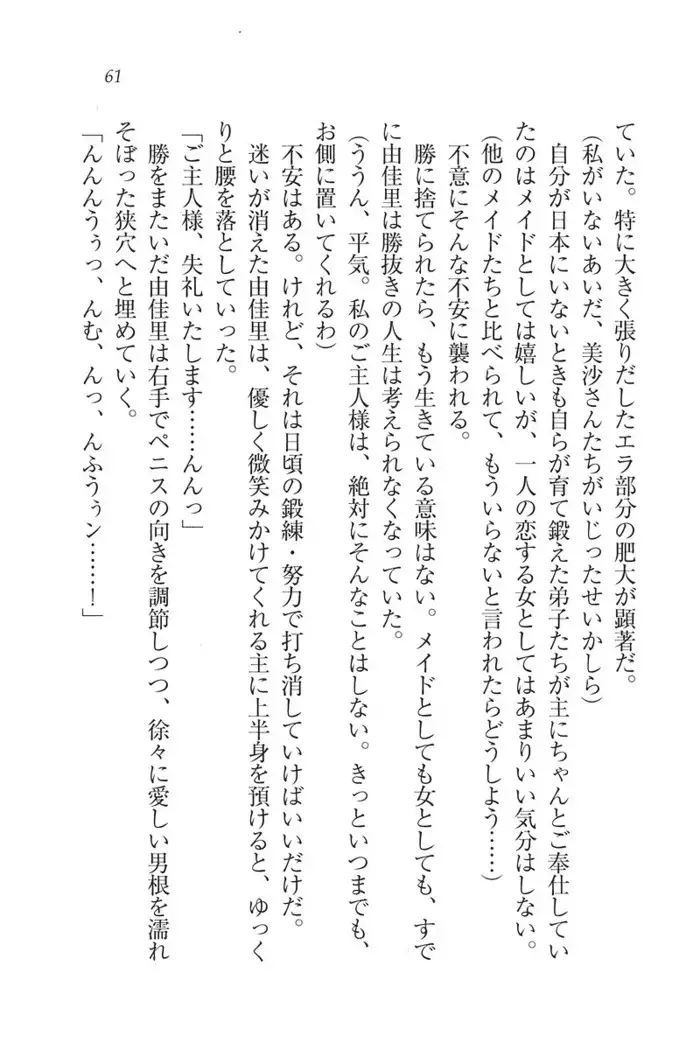 61
ていた。特に大きく張りだしたエラ部分の肥大が顕著だ。
(私がいないあいだ、美沙さんたちがいじったせいかしら)
自分が日本にいないときも自らが育て鍛えた弟子たちが主にちゃんとご奉仕してい
たのはメイドとしては嬉しいが、一人の恋する女としてはあまりいい気分はしない。
(他のメイドたちと比べられて、もういらないと言われたらどうしよう……)
不意にそんな不安に襲われる。
勝に捨てられたら、もう生きている意味はない。メイドとしても女としても、すで
に由佳里は勝抜きの人生は考えられなくなっていた。
(ううん、平気。私のご主人様は、絶対にそんなことはしない。きっといつまでも、
お側に置いてくれるわ)
不安はある。けれど、それは日頃の鍛練・努力で打ち消していけばいいだけだ。
迷いが消えた由佳里は、優しく微笑みかけてくれる主に上半身を預けると、ゆっく
りと腰を落としていった。
「ご主人様、失礼いたします……んんっ」
勝をまたいだ由佳里は右手でペニスの向きを調節しつつ、徐々に愛しい男根を濡れ
そぼった狭穴へと埋めていく。
「んんんうぅっ、んむ、んっ、んふうぅン……！」